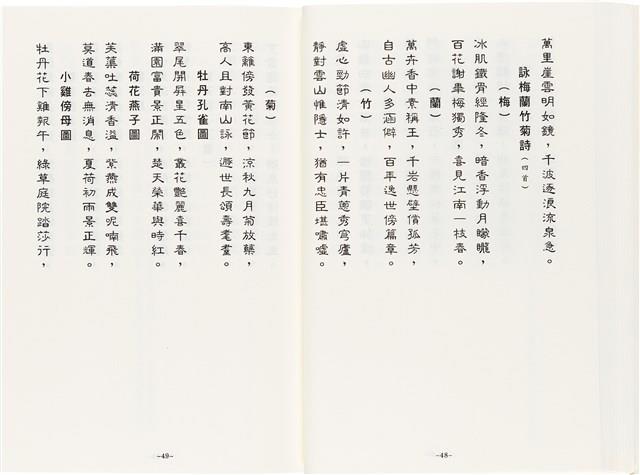 萬里崖雲明如鏡，千波逐浪流泉急。
詠梅蘭竹菊詩（四首）
（梅）
冰肌鐵骨經隆冬，暗香浮動月矇矓，
百花謝畢梅獨秀，喜見江南一枝春。
（蘭）
萬卉香中素稱王，千岩懸壁償孤芳，
自古幽人多涵僻，百年逸世傍篇章。
（竹）
虛心勁節清如許，一片青蔥秀穹廬，
靜對雲山惟隱士，猶有忠臣堪嘯噓。
-48-
（菊）
東籬傍發黃花節，涼秋九月菊放蘂，
高人且對南山詠，遯世長頌壽耄耋。
牡丹孔雀圖
翠尾開屏呈五色，叢花艷麗喜千春，
滿園富貴景正鬧，楚天榮華與時紅。
荷花燕子圖
芙蕖吐蕊清香溢，紫燕成雙呢喃飛，
莫道春去無消息，夏荷初雨景正輝。
小雞傍母圖
牡丹花下雞報午，綠草庭院踏莎行，
-49-